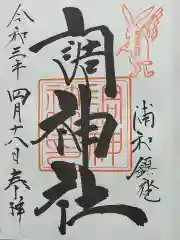 浦和鎮座
調神社
令和三年四月十八日奉拝